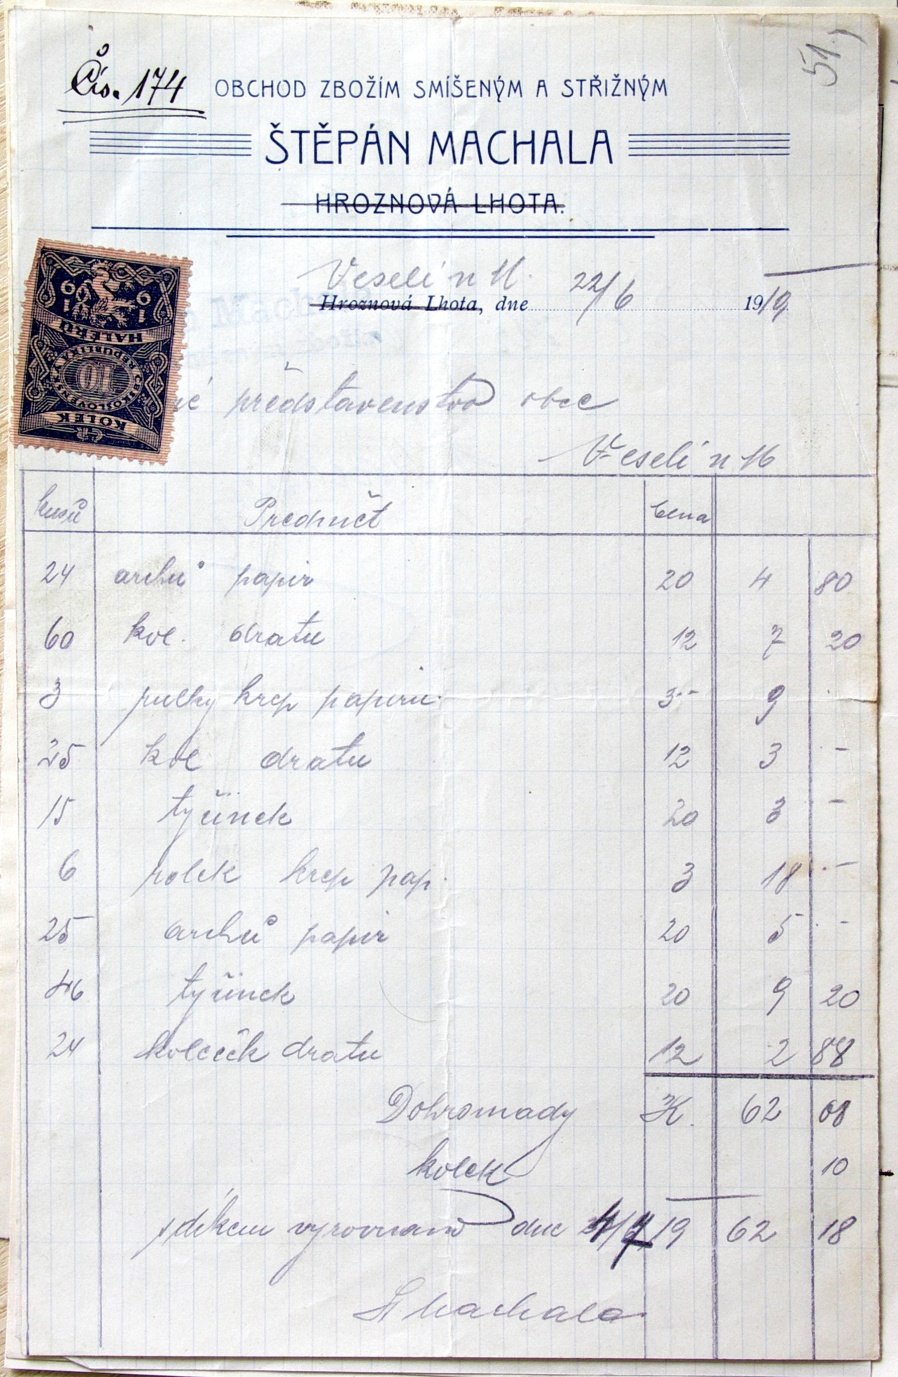 Čís. 174
51.)
OBCHOD ZBOŽÍM SMÍŠENÝM A STŘIŽNÝM
ŠTĚPÁN MACHALA
HROZNOVÁ LHOTA.
Veselí n M. 22/6
Hroznová Lhota, dne 1919
1919
HALÉŘŮ
REPUBLIKA ČESKOSLOVENSKÁ
10
KOLEK
představenstvo obce
Veselí n M
kusů Předmět Cena
24 archů papír 20 4 80
60 kol. dratu 12 7 20
3 pulky krep papiru 3- 9
25 kol dratu 12 3 -
15 tyčinek 20 3 -
6 rolek krep pap. 3 18 -
25 archů papír 20 5 -
46 tyčinek 20 9 20
24 koleček dratu 12 2 88
Dohromady K. 62 08
kolek 10
s díkem vyrovnáno dne 4/7 19 62 18
St Machala